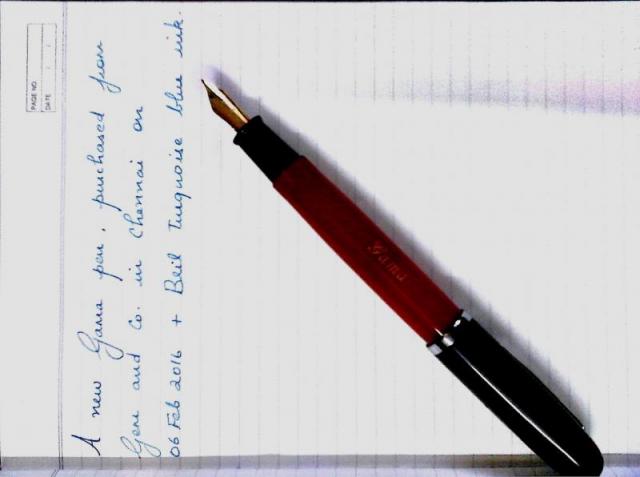 PAGE NO.
DATE
A new Gama pen, purchased from
Gem and Co. in Chennai on
06 Feb 2016 + Bril Turquoise blue ink.
Gama